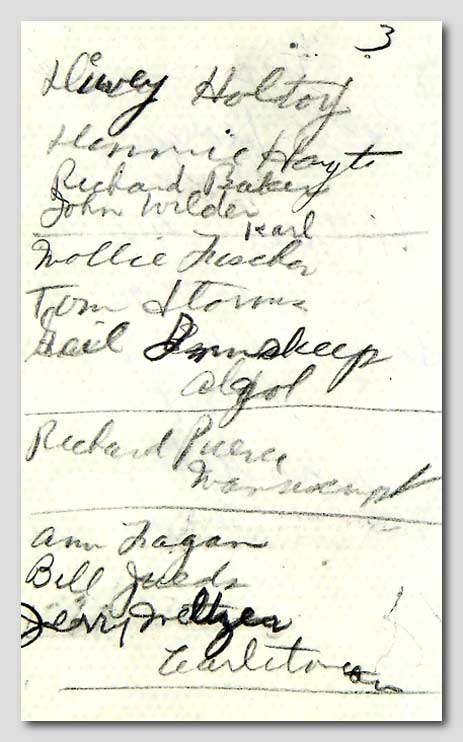 3
Dewey Holtoy
Hennie Hoyt
Richard Baker
John Wilder
Karl
Mollie Fischer
Tom Storms
Gail Inmskeep
Algol
Richard Pierce
Manuscript
Ann Fagan
Bill Jueds
Jerry Meltzer
Carletonian